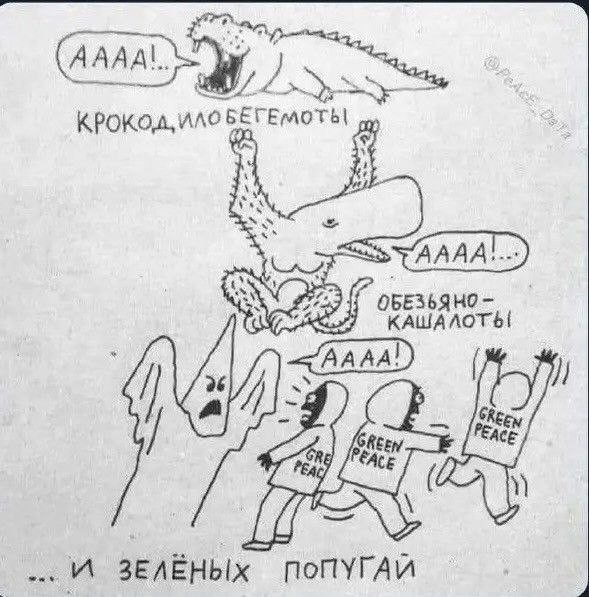 АААА!..
КРОКОДИЛОБЕГЕМОТЫ
@PeAcE_DaTa
АААА!...
ОБЕЗЬЯНО-
КАШАЛОТЫ
АААА!
GRE
PEAC
GREEN
PEACE
GREEN
PEACE
... И ЗЕЛЁНЫХ ПОПУГАЙ